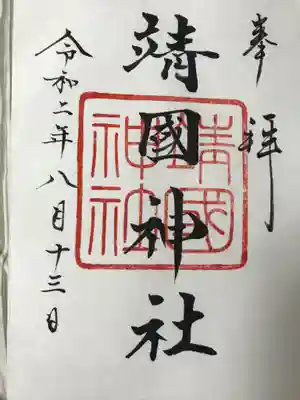 奉拝
靖國神社
靖國神社
令和二年八月十三日